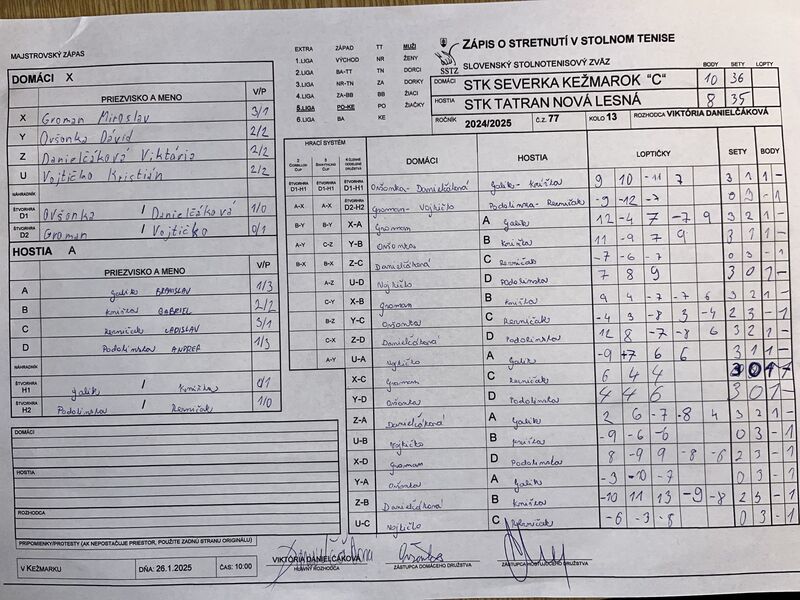 MAJSTROVSKÝ ZÁPAS
EXTRA ZÁPAD TT MUŽI
1.LIGA VÝCHOD NR ŽENY
2.LIGA BA-TT TN DORCI
3.LIGA NR-TN ZA DORKY
4.LIGA ZA-BB BB ŽIACI
5.LIGA PO-KE PO ŽIAČKY
6.LIGA BA KE
SSTZ
ZÁPIS O STRETNUTÍ V STOLNOM TENISE
SLOVENSKÝ STOLNOTENISOVÝ ZVÄZ
BODY SETY LOPTY
DOMÁCI STK SEVERKA KEŽMAROK "C" 10 36
HOSTIA STK TATRAN NOVÁ LESNÁ 8 35
ROČNÍK 2024/2025 Č.Z. 77 KOLO 13 ROZHODCA VIKTÓRIA DANIELČÁKOVÁ
DOMÁCI X
PRIEZVISKO A MENO V/P
X Groman Miroslav 3/1
Y Ovšonka Dávid 2/2
Z Danielčáková Viktória 2/2
U Vojtičko Kristián 2/2
NÁHRADNÍK
ŠTVORHRA D1 Ovšonka / Danielčáková 1/0
ŠTVORHRA D2 Groman / Vojtičko 0/1
HOSTIA A
PRIEZVISKO A MENO V/P
A Galik BRANISLAV 1/3
B Kniška GABRIEL 2/2
C Rerničak LADISLAV 3/1
D Podolinska ANDREA 1/3
NÁHRADNÍK
ŠTVORHRA H1 Galik / Kniška 0/1
ŠTVORHRA H2 Podolinska / Rerničak 1/0
DOMÁCI
HOSTIA
ROZHODCA
PRIPOMIENKY/PROTESTY (AK NEPOSTAČUJE PRIESTOR, POUŽITE ZADNÚ STRANU ORIGINÁLU)
V KEŽMARKU DŇA: 26.1.2025 ČAS: 10:00
HRACÍ SYSTÉM DOMÁCI HOSTIA LOPTIČKY SETY BODY
ŠTVORHRA D1-H1 ŠTVORHRA D1-H1 ŠTVORHRA D1-H1 Ovšonka - Danielčáková Galik - Kniška 9 10 -11 7 3 1 1 -
A-X A-X ŠTVORHRA D2-H2 Groman - Vojtičko Podolinska - Rerničak -9 -12 -7 0 3 - 1
B-Y B-Y X-A Groman A Galik 12 -4 7 -7 9 3 2 1 -
A-Y C-Z Y-B Ovšonka B Kniška 11 -9 7 9 3 1 1 -
B-X B-X Z-C Danielčáková C Rerničak -7 -6 -7 0 3 - 1
A-Z U-D Vojtičko D Podolinska 7 8 9 3 0 1 -
C-Y X-B Groman B Kniška 9 4 -7 -7 6 3 2 1 -
B-Z Y-C Ovšonka C Rerničak -4 3 -8 3 -4 2 3 - 1
C-X Z-D Danielčáková D Podolinska 12 8 -7 -8 6 3 2 1 -
A-Y U-A Vojtičko A Galik -9 +7 6 6 3 1 1 -
X-C Groman C Rerničak 6 4 4 3 0 1 -
Y-D Ovšonka D Podolinska 4 4 6 3 0 1 -
Z-A Danielčáková A Galik 2 6 -7 -8 4 3 2 1 -
U-B Vojtičko B Kniška -9 -6 -6 0 3 - 1
X-D Groman D Podolinska 8 -9 9 -8 -6 2 3 - 1
Y-A Ovšonka A Galik -3 -10 -7 0 3 - 1
Z-B Danielčáková B Kniška -10 11 13 -9 -8 2 3 - 1
U-C Vojtičko C Rerničak -6 -3 -8 0 3 - 1
VIKTÓRIA DANIELČÁKOVÁ
HLAVNÝ ROZHODCA
ZÁSTUPCA DOMÁCEHO DRUŽSTVA
ZÁSTUPCA HOSŤUJÚCEHO DRUŽSTVA